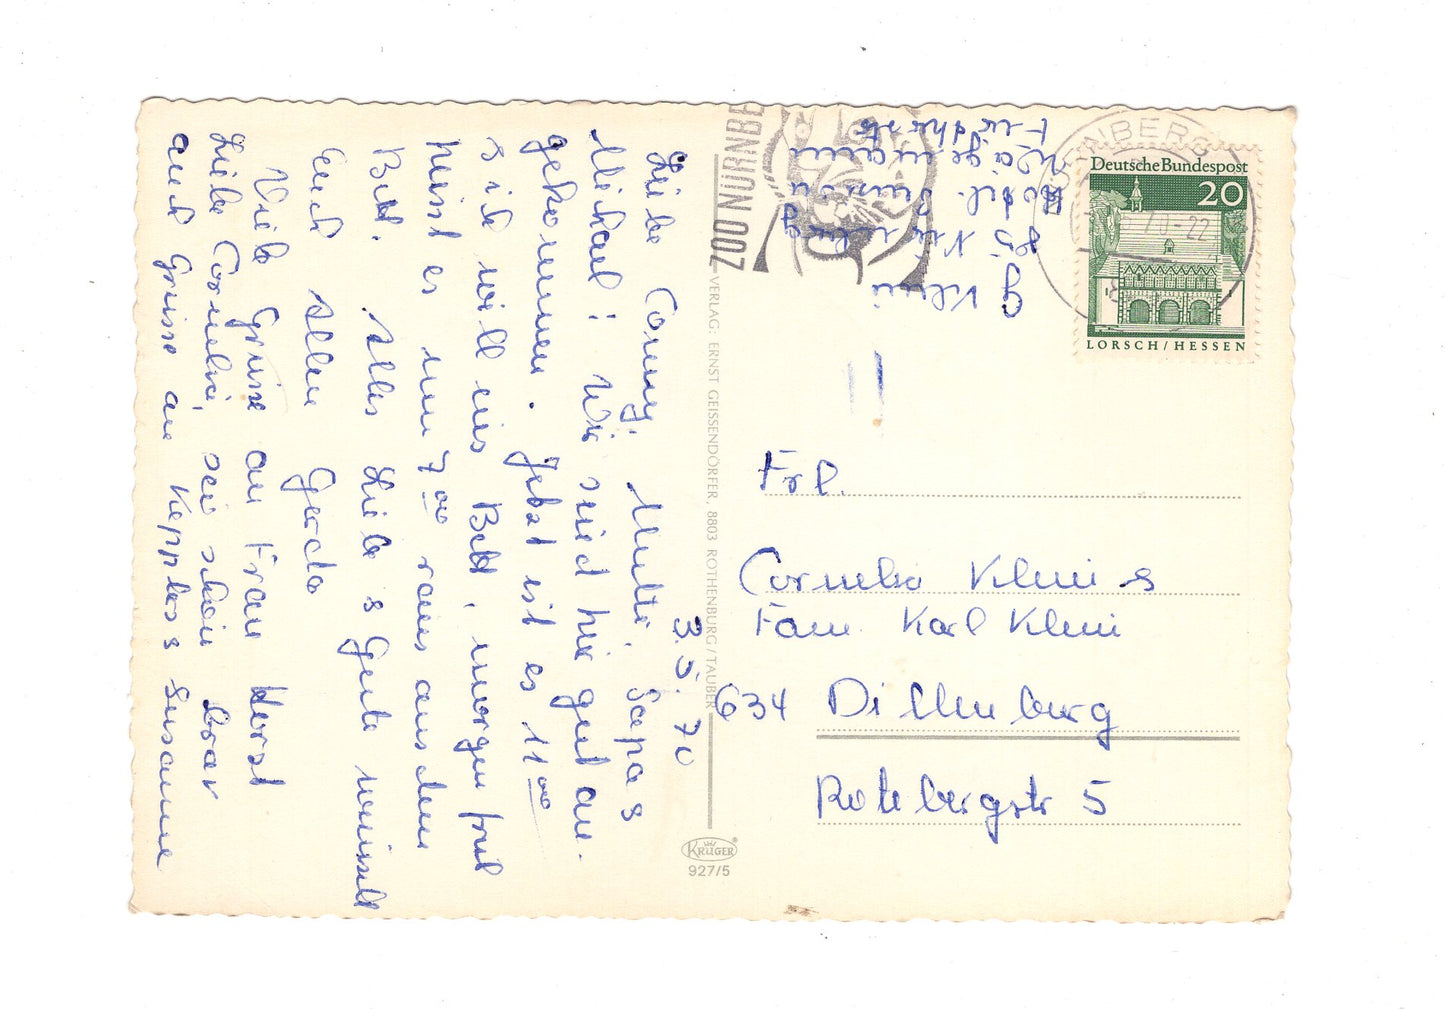 3.5.70
Liebe Conny, Mutti, Papa s
Michael! Wir sind hir gut an-
gekommen. Jetzt ist es 11 00
s ich will ins Bett, morgen früh
heist es um 7 00 raus aus dem
Bett. Alles Liebe s Gute wünscht
Euch Allen Gerda
Viele Grüsse an Frau Horst
Liebe Cornelia, sei schön brav
auch Grüsse an Kepplers Susanne
ZOO NÜRNBE
G Klein
85 Nürnberg
NÜRNBERG
70-22
Deutsche Bundespost
20
LORSCH/HESSEN
VERLAG: ERNST GEISSENDÖRFER, 8803 ROTHENBURG/TAUBER
Frl.
Cornelia Klein s
Fam. Karl Klein
634 Dillenburg
Rotebergstr 5
KRÜGER
927/5